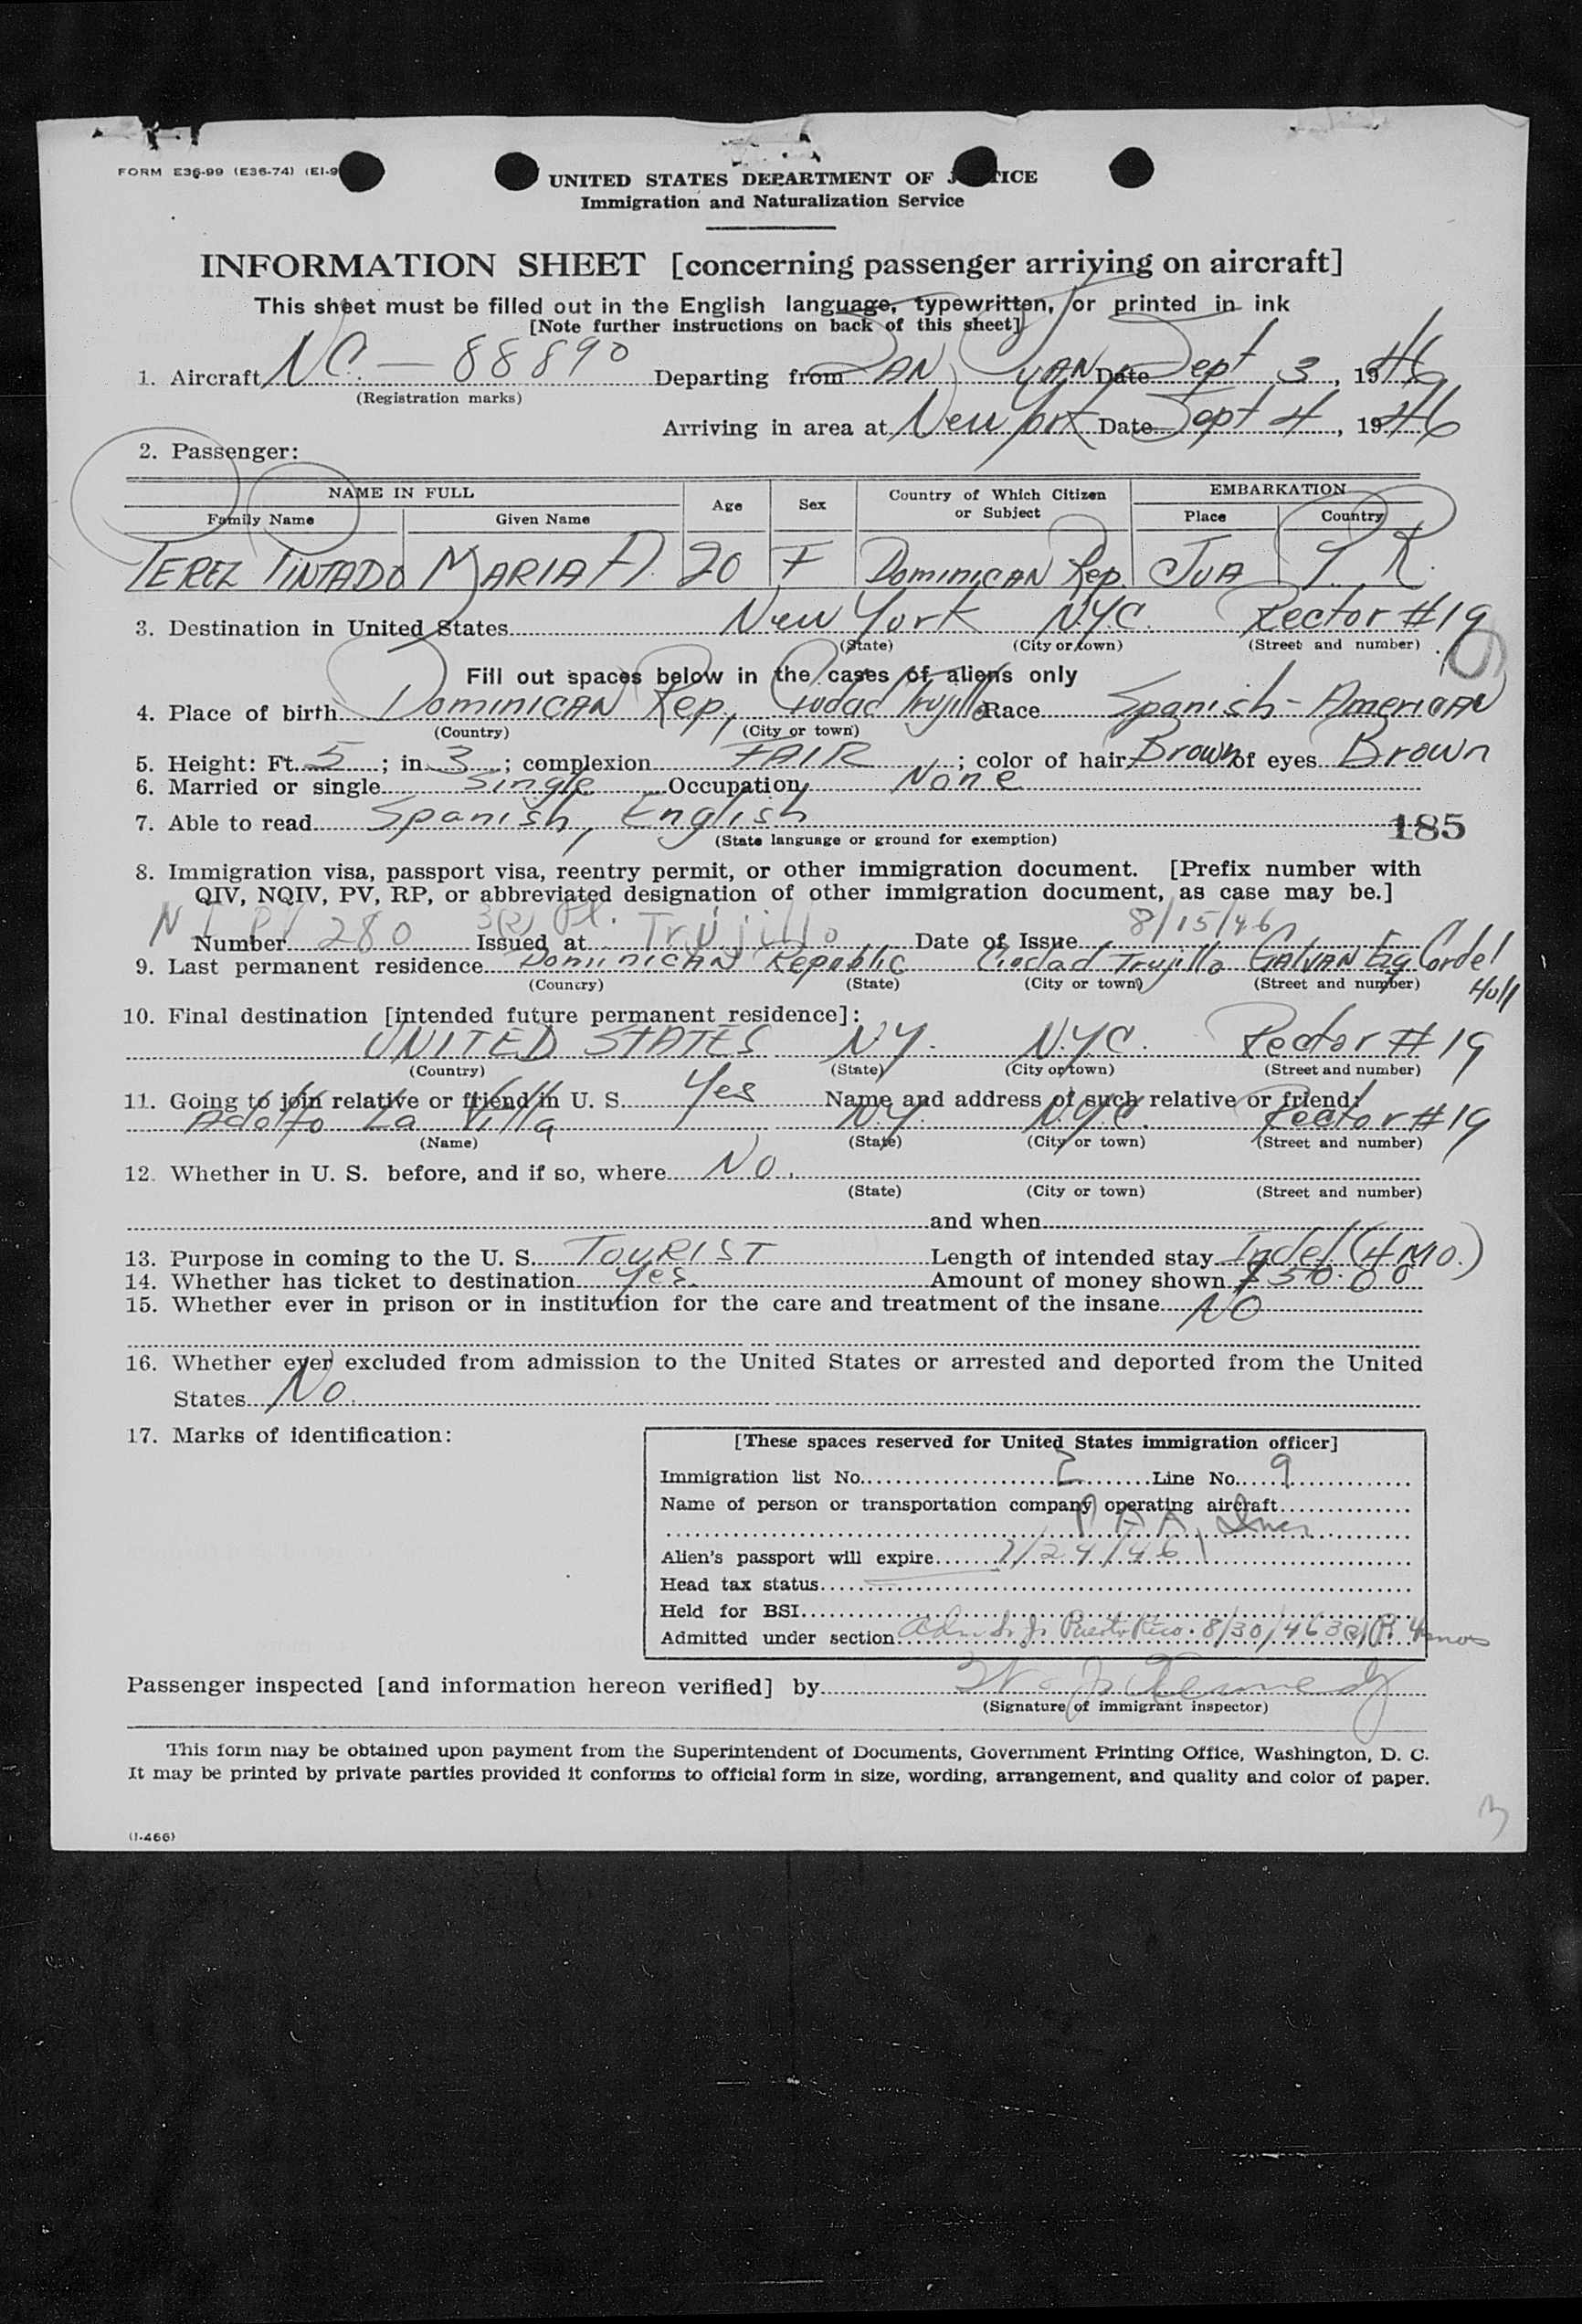 FORM E36-99 (E36-74) (EI-9
UNITED STATES DEPARTMENT OF J TICE
Immigration and Naturalization Service
INFORMATION SHEET [concerning passenger arriving on aircraft]
This sheet must be filled out in the English language, typewritten, or printed in ink
[Note further instructions on back of this sheet]
1. Aircraft NC. — 88890 Departing from SAN JUAN Date Sept 3, 1946
(Registration marks)
Arriving in area at New York Date Sept 4, 1946
2. Passenger:
NAME IN FULL Age Sex Country of Which Citizen or Subject EMBARKATION
Family Name Given Name Place Country
PEREZ PINTADO MARIA A. 20 F DOMINICAN Rep. JUA P. R.
3. Destination in United States New York N.Y.C. Rector #19
(State) (City or town) (Street and number)
Fill out spaces below in the cases of aliens only
4. Place of birth DOMINICAN Rep, Ciudad Trujillo Race Spanish-American
(Country) (City or town)
5. Height: Ft. 5; in 3; complexion FAIR; color of hair Brown of eyes Brown
6. Married or single Single Occupation None
7. Able to read Spanish, English
(State language or ground for exemption)
185
8. Immigration visa, passport visa, reentry permit, or other immigration document. [Prefix number with
QIV, NQIV, PV, RP, or abbreviated designation of other immigration document, as case may be.]
Number 280 3(2) Issued at Trujillo Date of Issue 8/15/46
9. Last permanent residence Dominican Republic Ciudad Trujillo GALVAN Esq Cordel Hull
(Country) (State) (City or town) (Street and number)
10. Final destination [intended future permanent residence]:
UNITED STATES N.Y. N.Y.C. Rector #19
(Country) (State) (City or town) (Street and number)
11. Going to join relative or friend in U. S. Yes Name and address of such relative or friend:
Adolfo La Villa N.Y. N.Y.C. Rector #19
(Name) (State) (City or town) (Street and number)
12. Whether in U. S. before, and if so, where No.
(State) (City or town) (Street and number)
and when
13. Purpose in coming to the U. S. TOURIST Length of intended stay Indef (4 MO.)
14. Whether has ticket to destination Yes. Amount of money shown $50.00
15. Whether ever in prison or in institution for the care and treatment of the insane NO
16. Whether ever excluded from admission to the United States or arrested and deported from the United
States No.
17. Marks of identification:
[These spaces reserved for United States immigration officer]
Immigration list No. 2 Line No. 9
Name of person or transportation company operating aircraft
P A A,
Alien's passport will expire /24/46
Head tax status
Held for BSI
Admitted under section Puerto Rico. 8/30/46 4 mos
Passenger inspected [and information hereon verified] by Kennedy
(Signature of immigrant inspector)
This form may be obtained upon payment from the Superintendent of Documents, Government Printing Office, Washington, D. C.
It may be printed by private parties provided it conforms to official form in size, wording, arrangement, and quality and color of paper.
(I-466)